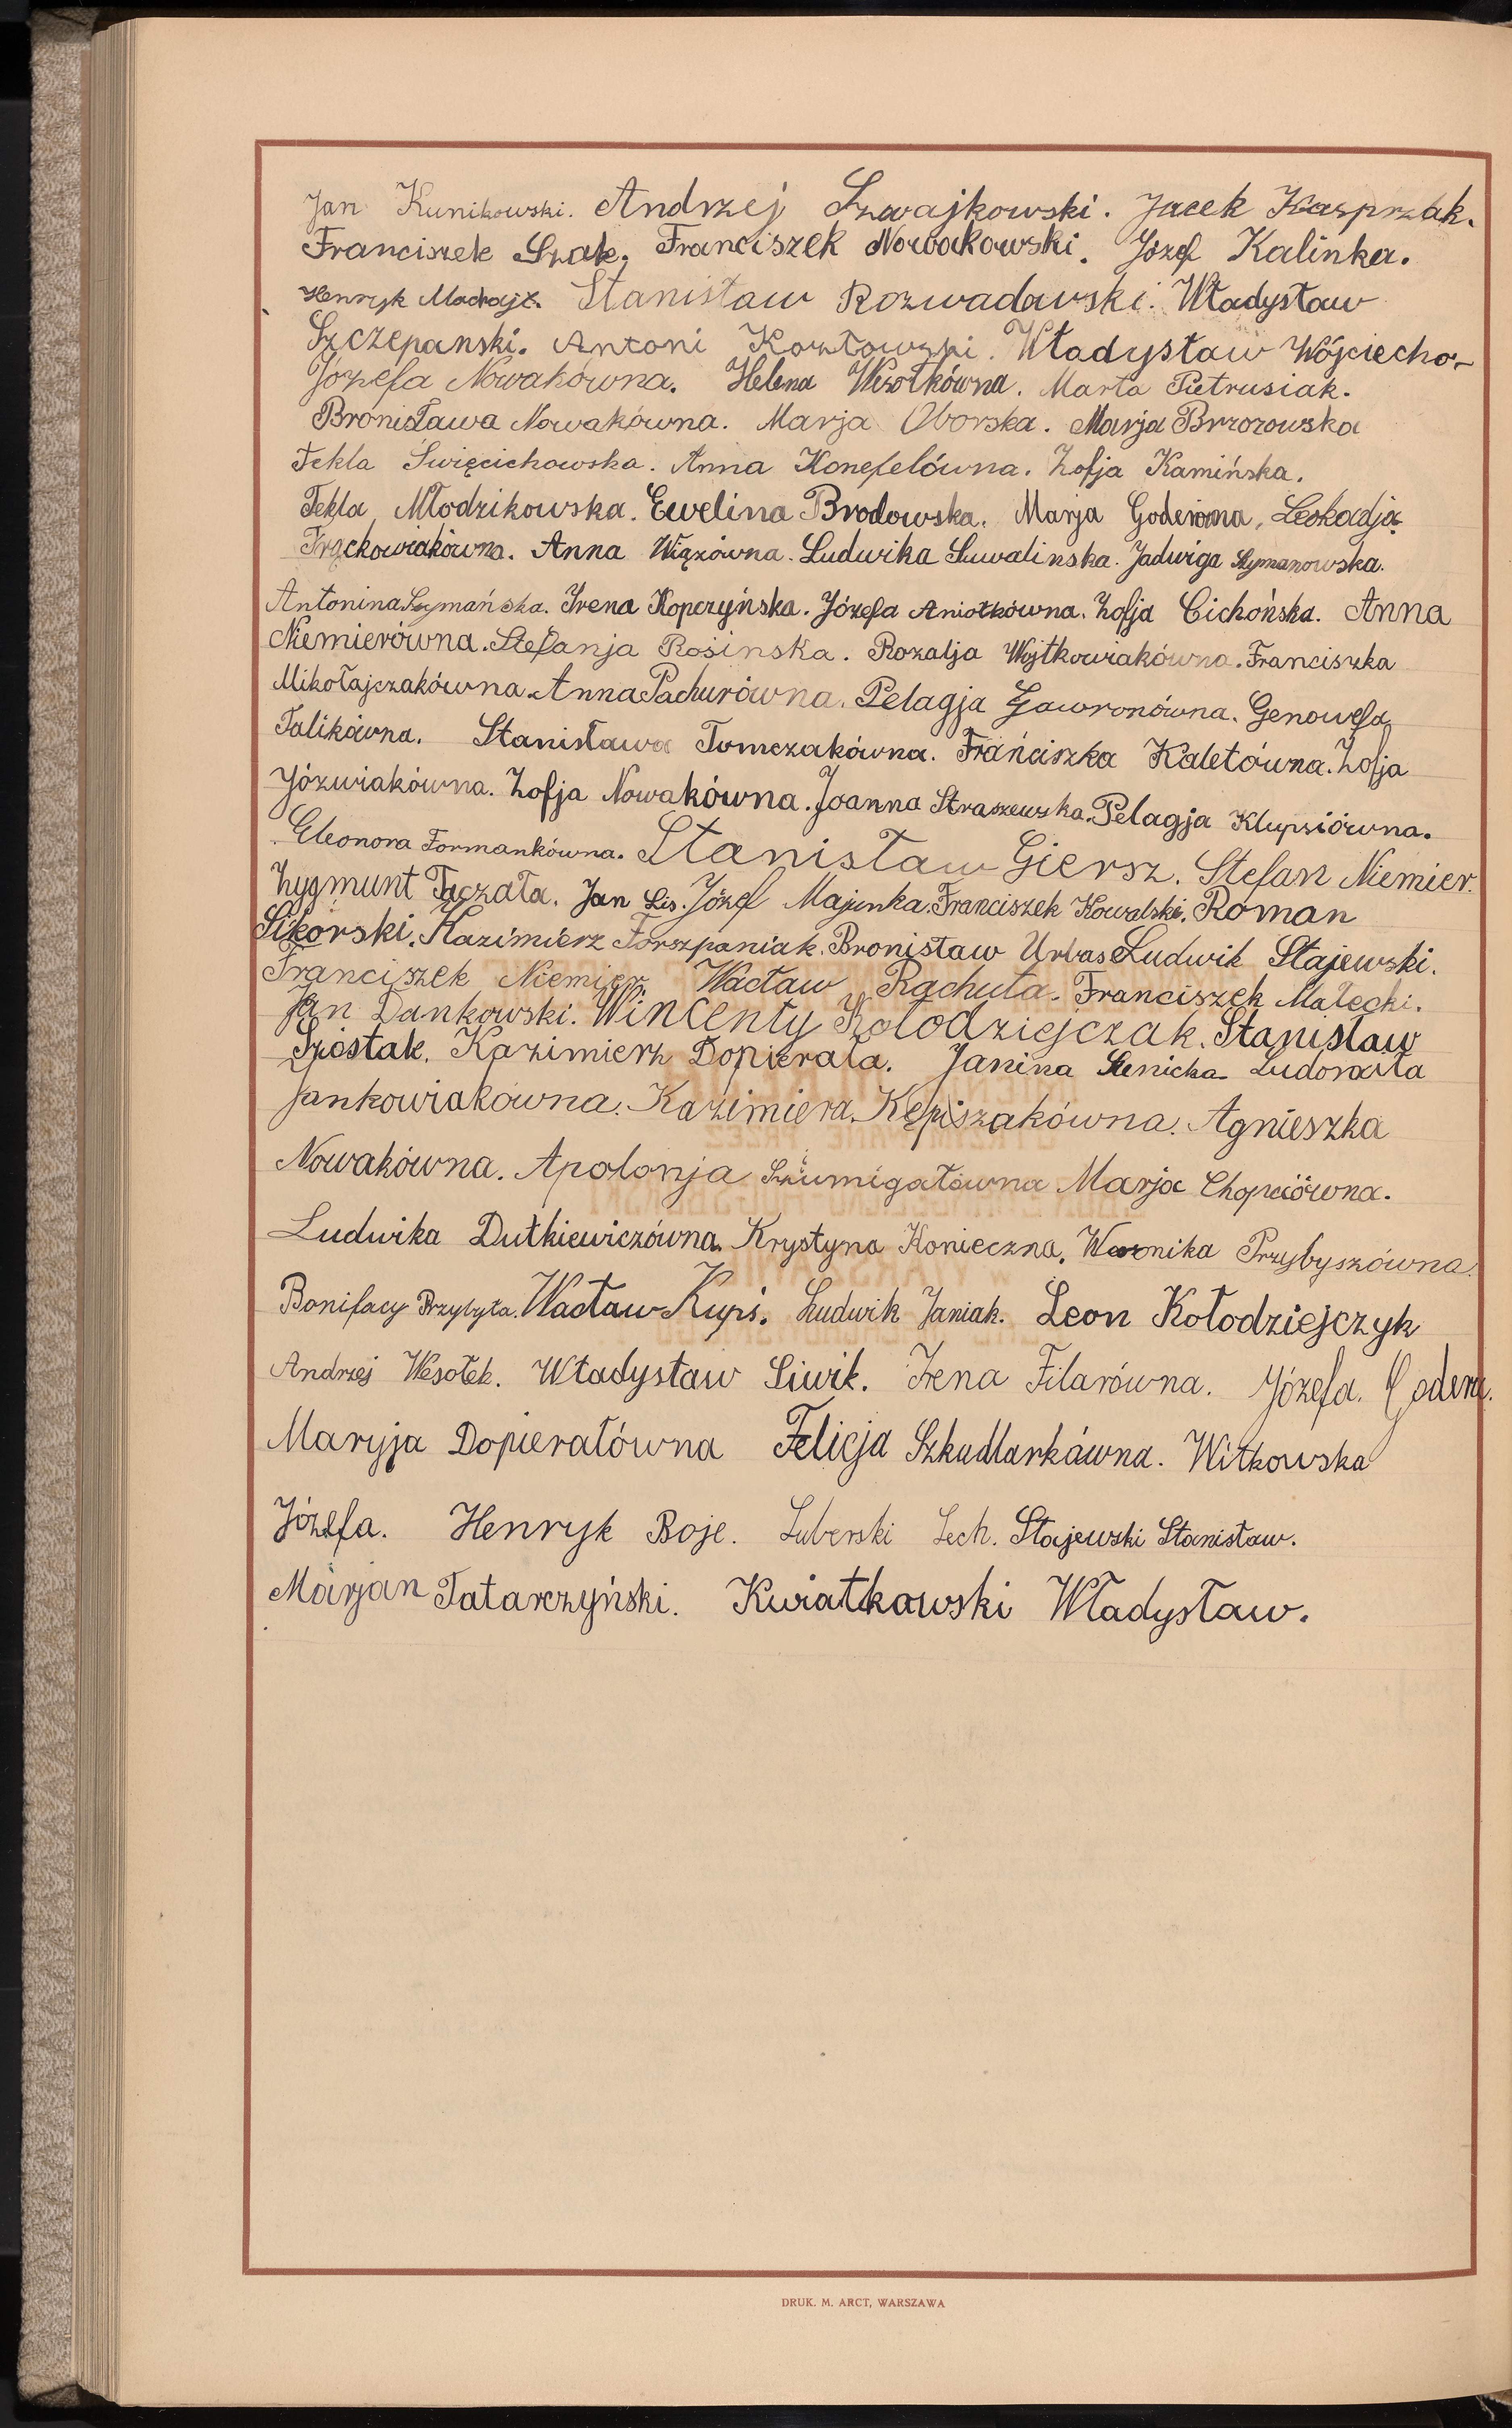 Jan Kunikowski. Andrzej Szwajkowski. Jacek Kasprzak.
Franciszek Szak. Franciszek Nowakowski. Józef Kalinka.
Henryk Stanisław Rozwadowski. Władysław
Szczepanski. Antoni Kozłowski. Władysław Wójciecho-
Józefa Nowakówna. Helena Wesołkówna. Marta Pietrusiak.
Bronisława Nowakówna. Marja Oborska. Marja Brzozowska
Tekla Święcichowska. Anna Konefelówna. Zofja Kamińska.
Tekla Młodzikowska. Ewelina Brodowska. Marja Leokadja
Frąckowiakówna. Anna Wiązówna. Ludwika Suwalinska. Jadwiga Szymanowska.
Antonina Szymańska. Irena Kopczyńska. Józefa Aniołkówna. Zofja Cichońska. Anna
Niemierówna. Stefanja Rosinska. Rozalja Wojtkowiakówna. Franciszka
Mikołajczakówna. Anna Pachurówna. Pelagja Gawronówna. Genowefa
Talikówna. Stanisława Tomczakówna. Franciszka Kaletówna. Zofja
Józwiakówna. Zofja Nowakówna. Joanna Straszewska. Pelagja Klupsiówna.
Eleonora Formankówna. Stanisław Giersz. Stefan Niemier.
Zygmunt Tączała. Jan Lis. Józef Majenka. Franciszek Kowalski. Roman
Sikorski. Kazimierz Forszpaniak. Bronisław Urbas Ludwik Stajewski.
Franciszek Niemier. Wacław Rachuta. Franciszek Małecki.
Jan Dankowski. Wincenty Kołodziejczak. Stanisław
Szóstak. Kazimierz Dopierała. Janina Sienicka
Jankowiakówna. Kazimiera Kępiszakówna. Agnieszka
Nowakówna. Apolonja Szumigałówna Marja Chopciówna.
Ludwika Dutkiewiczówna. Krystyna Konieczna. Weronika Przybyszówna.
Bonifacy Przybyła. Wacław Kupś. Ludwik Janiak. Leon Kołodziejczyk
Andrzej Wesołek. Władysław Siwik. Irena Filarówna. Józefa. Godera.
Maryja Dopierałówna Felicja Szkudlarkówna. Witkowska
Józefa. Henryk Boje. Luberski Lech. Stajewski Stanisław.
Marjan Tatarczyński. Kwiatkowski Władysław.
DRUK. M. ARCT, WARSZAWA